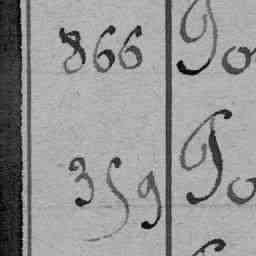 866 Jo
359 Jo